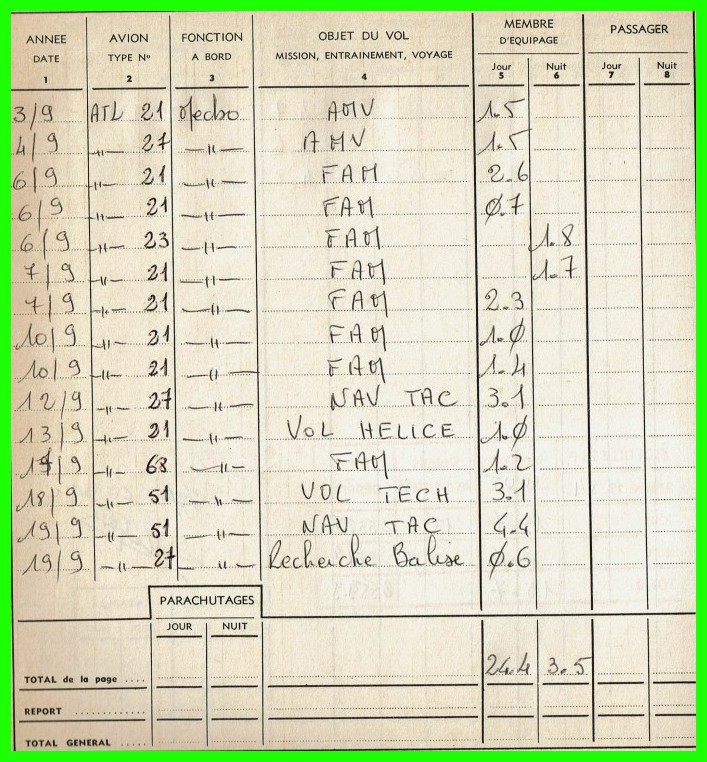 ANNEE AVION FONCTION OBJET DU VOL MEMBRE D'EQUIPAGE PASSAGER
DATE TYPE N° A BORD MISSION, ENTRAINEMENT, VOYAGE Jour Nuit Jour Nuit
1 2 3 4 5 6 7 8
3/9 ATL 21 Mecbo AMV 1.5
4/9 —"— 27 —"— AMV 1.5
6/9 —"— 21 —"— FAM 2.6
6/9 —"— 21 —"— FAM Ø.7
6/9 —"— 23 —"— FAM 1.8
7/9 —"— 21 —"— FAM 1.7
7/9 —"— 21 —"— FAM 2.3
10/9 —"— 21 —"— FAM 1.Ø
10/9 —"— 21 —"— FAM 1.4
12/9 —"— 27 —"— NAV TAC 3.1
13/9 —"— 21 —"— VOL HELICE 1.Ø
/9 —"— 68 —"— FAM 1.2
18/9 —"— 51 —"— VOL TECH 3.1
19/9 —"— 51 —"— NAV TAC 4.4
19/9 —"— 27 —"— Recherche Balise Ø.6
PARACHUTAGES
JOUR NUIT
TOTAL de la page .... 24.4 3.5
REPORT ..............
TOTAL GENERAL ......